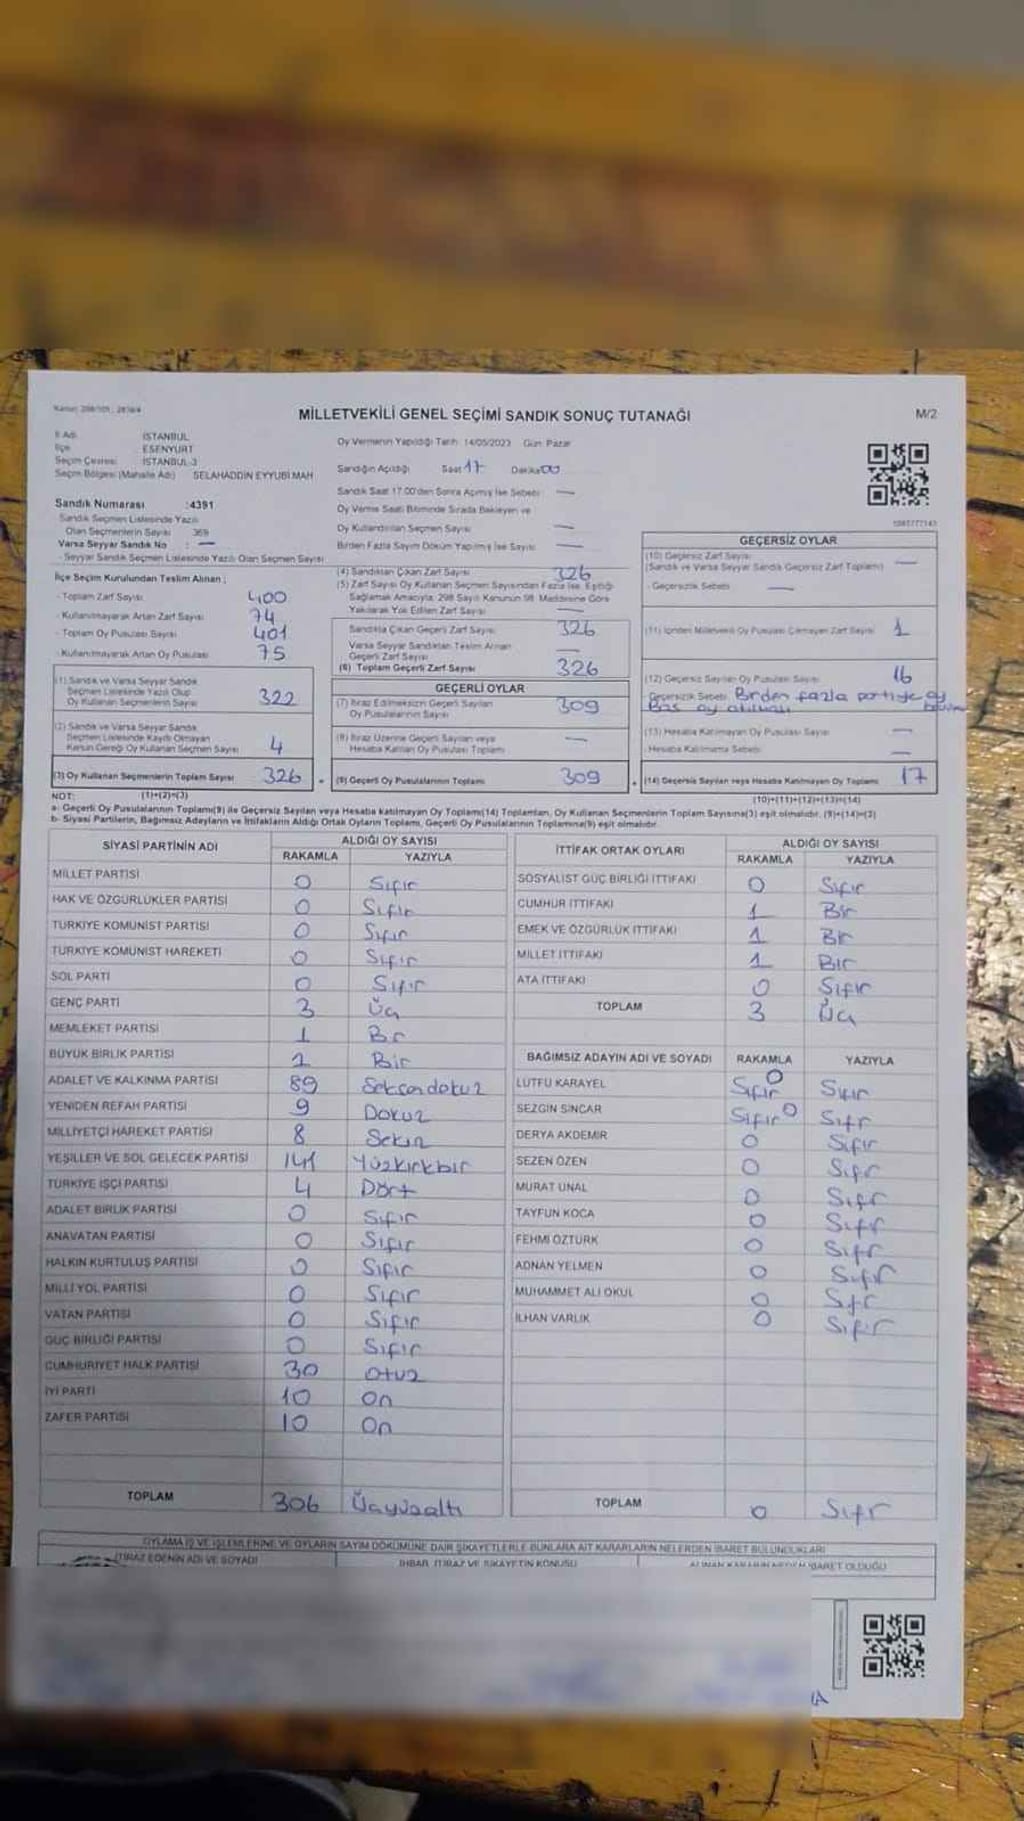 MİLLETVEKİLİ GENEL SEÇİMİ SANDIK SONUÇ TUTANAĞI
M/2
İl Adı İSTANBUL
İlçe ESENYURT
Seçim Çevresi İSTANBUL-3
Seçim Bölgesi (Mahalle Adı) SELAHADDİN EYYUBİ MAH
Sandık Numarası :4391
Sandık Seçmen Listesinde Yazılı
Olan Seçmenlerin Sayısı 369
Varsa Seyyar Sandık No : —
- Seyyar Sandık Seçmen Listesinde Yazılı Olan Seçmen Sayısı
Oy Vermenin Yapıldığı Tarih 14/05/2023 Gün Pazar
Sandığın Açıldığı Saat 17 Dakika 00
Sandık Saat 17.00'den Sonra Açılmış İse Sebebi —
Oy Verme Saati Bitiminde Sırada Bekleyen ve
Oy Kullandırılan Seçmen Sayısı —
Birden Fazla Sayım Döküm Yapılmış İse Sayısı —
İlçe Seçim Kurulundan Teslim Alınan ;
- Toplam Zarf Sayısı 400
- Kullanılmayarak Artan Zarf Sayısı 74
- Toplam Oy Pusulası Sayısı 401
- Kullanılmayarak Artan Oy Pusulası 75
(1) Sandık ve Varsa Seyyar Sandık
Seçmen Listesinde Yazılı Olup
Oy Kullanan Seçmenlerin Sayısı 322
(2) Sandık ve Varsa Seyyar Sandık
Seçmen Listesinde Kayıtlı Olmayan
Kanun Gereği Oy Kullanan Seçmen Sayısı 4
(3) Oy Kullanan Seçmenlerin Toplam Sayısı 326
(4) Sandıktan Çıkan Zarf Sayısı 326
(5) Zarf Sayısı Oy Kullanan Seçmen Sayısından Fazla İse, Eşitliği
Sağlamak Amacıyla, 298 Sayılı Kanunun 98. Maddesine Göre
Yakılarak Yok Edilen Zarf Sayısı —
Sandıkta Çıkan Geçerli Zarf Sayısı 326
Varsa Seyyar Sandıktan Teslim Alınan
Geçerli Zarf Sayısı —
(6) Toplam Geçerli Zarf Sayısı 326
GEÇERLİ OYLAR
(7) İtiraz Edilmeksizin Geçerli Sayılan
Oy Pusulalarının Sayısı 309
(8) İtiraz Üzerine Geçerli Sayılan veya
Hesaba Katılan Oy Pusulası Toplamı —
(9) Geçerli Oy Pusulalarının Toplamı 309
GEÇERSİZ OYLAR
(10) Geçersiz Zarf Sayısı
(Sandık ve Varsa Seyyar Sandık Geçersiz Zarf Toplamı) —
- Geçersizlik Sebebi —
(11) İçinden Milletvekili Oy Pusulası Çıkmayan Zarf Sayısı 1
(12) Geçersiz Sayılan Oy Pusulası Sayısı 16
Geçersizlik Sebebi Birden fazla partiye oy
Boş oy atılması
(13) Hesaba Katılmayan Oy Pusulası Sayısı —
- Hesaba Katılmama Sebebi —
(14) Geçersiz Sayılan veya Hesaba Katılmayan Oy Toplamı 17
NOT: (1)+(2)=(3)
(10)+(11)+(12)+(13)=(14)
a- Geçerli Oy Pusulalarının Toplamı(9) ile Geçersiz Sayılan veya Hesaba katılmayan Oy Toplamı(14) Toplamları, Oy Kullanan Seçmenlerin Toplam Sayısına(3) eşit olmalıdır. (9)+(14)=(3)
b- Siyasi Partilerin, Bağımsız Adayların ve İttifakların Aldığı Ortak Oyların Toplamı, Geçerli Oy Pusulalarının Toplamına(9) eşit olmalıdır.
SİYASİ PARTİNİN ADI ALDIĞI OY SAYISI
RAKAMLA YAZIYLA
MİLLET PARTİSİ 0 Sıfır
HAK VE ÖZGÜRLÜKLER PARTİSİ 0 Sıfır
TÜRKİYE KOMÜNİST PARTİSİ 0 Sıfır
TÜRKİYE KOMÜNİST HAREKETİ 0 Sıfır
SOL PARTİ 0 Sıfır
GENÇ PARTİ 3 Üç
MEMLEKET PARTİSİ 1 Br
BÜYÜK BİRLİK PARTİSİ 1 Bir
ADALET VE KALKINMA PARTİSİ 89 Seksendokuz
YENİDEN REFAH PARTİSİ 9 Dokuz
MİLLİYETÇİ HAREKET PARTİSİ 8 Sekiz
YEŞİLLER VE SOL GELECEK PARTİSİ 141 Yüzkırkbir
TÜRKİYE İŞÇİ PARTİSİ 4 Dört
ADALET BİRLİK PARTİSİ 0 Sıfır
ANAVATAN PARTİSİ 0 Sıfır
HALKIN KURTULUŞ PARTİSİ 0 Sıfır
MİLLİ YOL PARTİSİ 0 Sıfır
VATAN PARTİSİ 0 Sıfır
GÜÇ BİRLİĞİ PARTİSİ 0 Sıfır
CUMHURİYET HALK PARTİSİ 30 Otuz
İYİ PARTİ 10 On
ZAFER PARTİSİ 10 On
TOPLAM 306 Üçyüzaltı
İTTİFAK ORTAK OYLARI ALDIĞI OY SAYISI
RAKAMLA YAZIYLA
SOSYALİST GÜÇ BİRLİĞİ İTTİFAKI 0 Sıfır
CUMHUR İTTİFAKI 1 Bir
EMEK VE ÖZGÜRLÜK İTTİFAKI 1 Bir
MİLLET İTTİFAKI 1 Bir
ATA İTTİFAKI 0 Sıfır
TOPLAM 3 Üç
BAĞIMSIZ ADAYIN ADI VE SOYADI RAKAMLA YAZIYLA
LÜTFÜ KARAYEL Sıfır 0 Sıfır
SEZGİN SİNCAR Sıfır 0 Sıfr
DERYA AKDEMİR 0 Sıfır
SEZEN ÖZEN 0 Sıfr
MURAT ÜNAL 0 Sıfr
TAYFUN KOCA 0 Sıfr
FEHMİ ÖZTÜRK 0 Sıfr
ADNAN YELMEN 0 Sıfır
MUHAMMET ALİ OKUL 0 Sıfr
İLHAN VARLIK 0 Sıfır
TOPLAM 0 Sıfr
OYLAMA İŞ VE İŞLEMLERİNE VE OYLARIN SAYIM DÖKÜMÜNE DAİR ŞİKAYETLERLE BUNLARA AİT KARARLARIN NELERDEN İBARET BULUNDUKLARI
İTİRAZ EDENİN ADI VE SOYADI İHBAR, İTİRAZ VE ŞİKAYETİN KONUSU